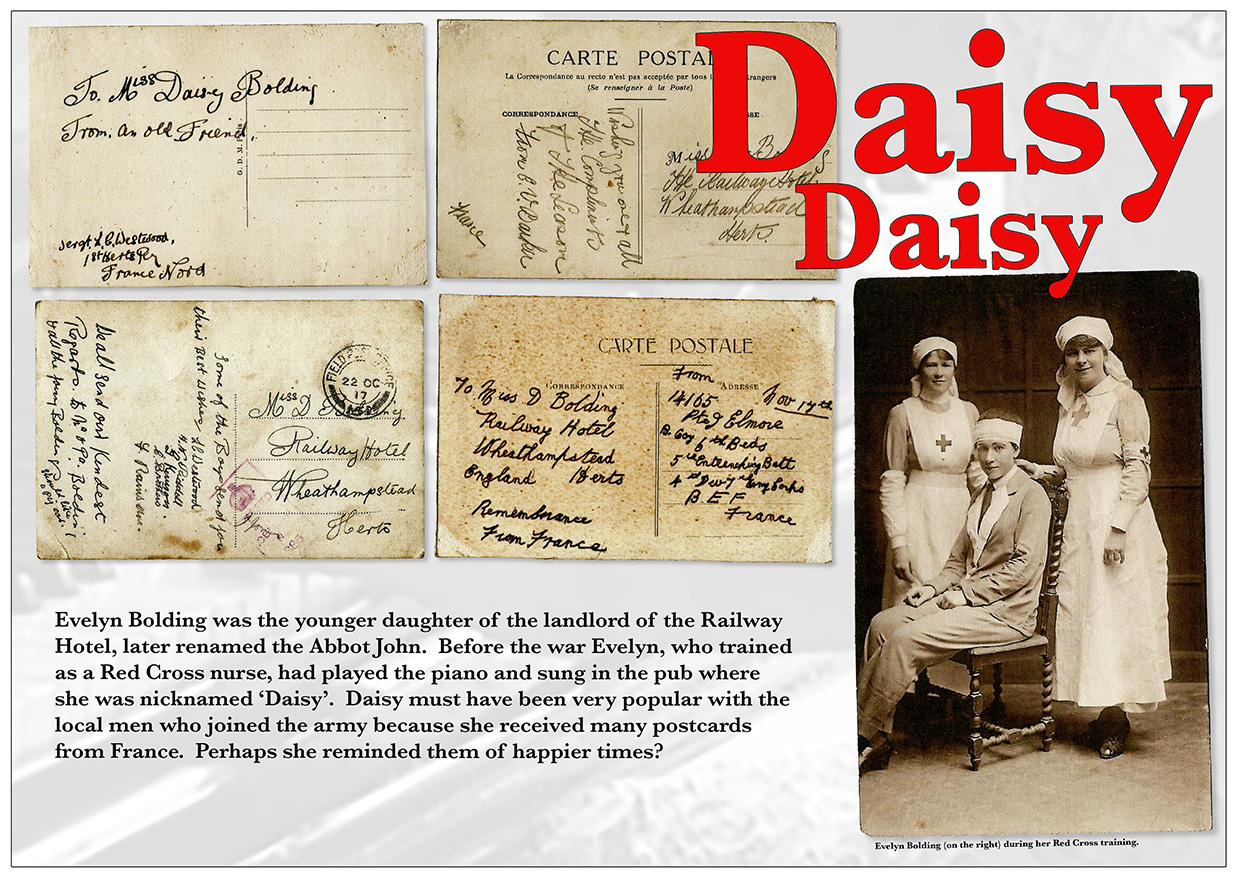 Daisy
Daisy
To. Miss Daisy Bolding
From. An old Friend.
Sergt
Westwood,
1st Herts Rgt
France Nord
CARTE POSTAL
La Correspondance au recto n'est pas acceptée par tous l
trangers
(Se renseigner à la Poste)
CORRESPONDANCE
SSE
Wishing you one & all
The Compliments
of The Season
from
Barker
France
Miss
B
s
The Railway Hotel
Wheathampstead
Herts.
We all sent our Kindest
Regards. to
& all the
Some of the Boys send you
their Best Wishes
Westwood
FIELD
22 OC
17
Miss D B
Railway Hotel
Wheathampstead
Herts
CARTE POSTALE
CORRESPONDANCE
ADRESSE
To Miss D Bolding
Railway Hotel
Wheathampstead
England Herts
Remembrance
From France
From
Nov 17th
14165
Pte J Elmore
B. Coy 6th Beds
5th Entrenching Batt
B. E. F
France
Evelyn Bolding was the younger daughter of the landlord of the Railway
Hotel, later renamed the Abbot John. Before the war Evelyn, who trained
as a Red Cross nurse, had played the piano and sung in the pub where
she was nicknamed ‘Daisy’. Daisy must have been very popular with the
local men who joined the army because she received many postcards
from France. Perhaps she reminded them of happier times?
Evelyn Bolding (on the right) during her Red Cross training.